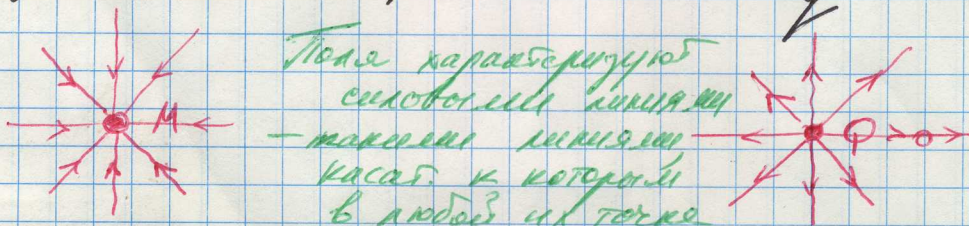 Поля характеризуют
силовыми линиями
— такими линиями,
M Q > 0
касат. к которым
в любой их точке